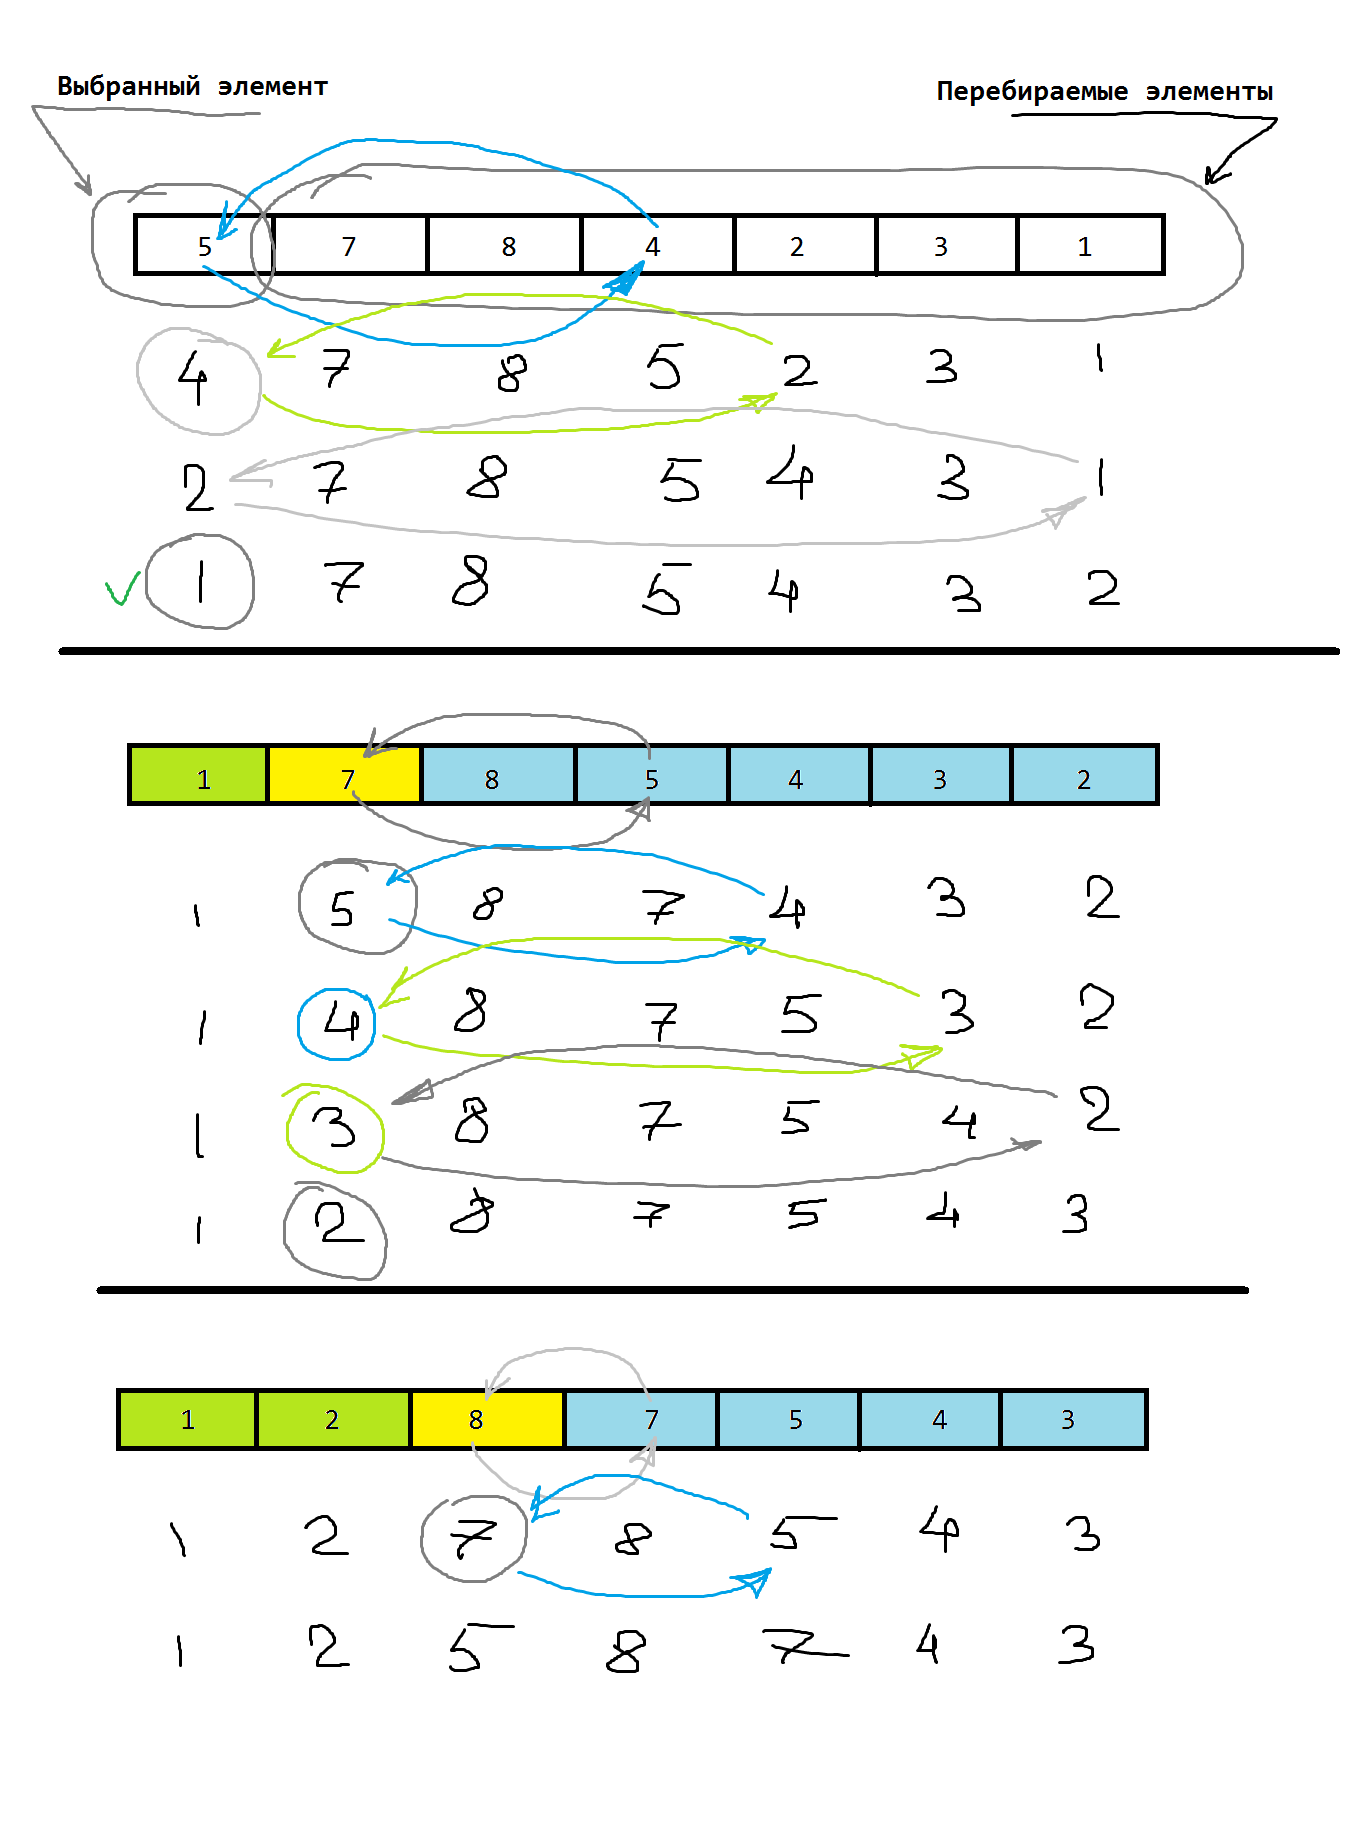 Выбранный элемент Перебираемые элементы
5 7 8 4 2 3 1
4 7 8 5 2 3 1
2 7 8 5 4 3 1
1 7 8 5 4 3 2
1 7 8 5 4 3 2
1 5 8 7 4 3 2
1 4 8 7 5 3 2
1 3 8 7 5 4 2
1 2 8 7 5 4 3
1 2 8 7 5 4 3
1 2 7 8 5 4 3
1 2 5 8 7 4 3